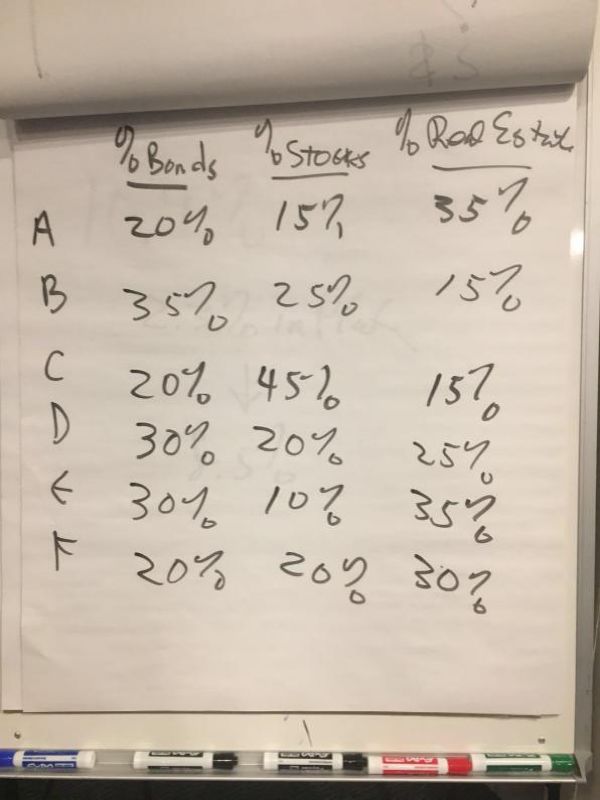 % Bonds % Stocks % Real Estate
A 20% 15% 35%
B 35% 25% 15%
C 20% 45% 15%
D 30% 20% 25%
E 30% 10% 35%
F 20% 20% 30%